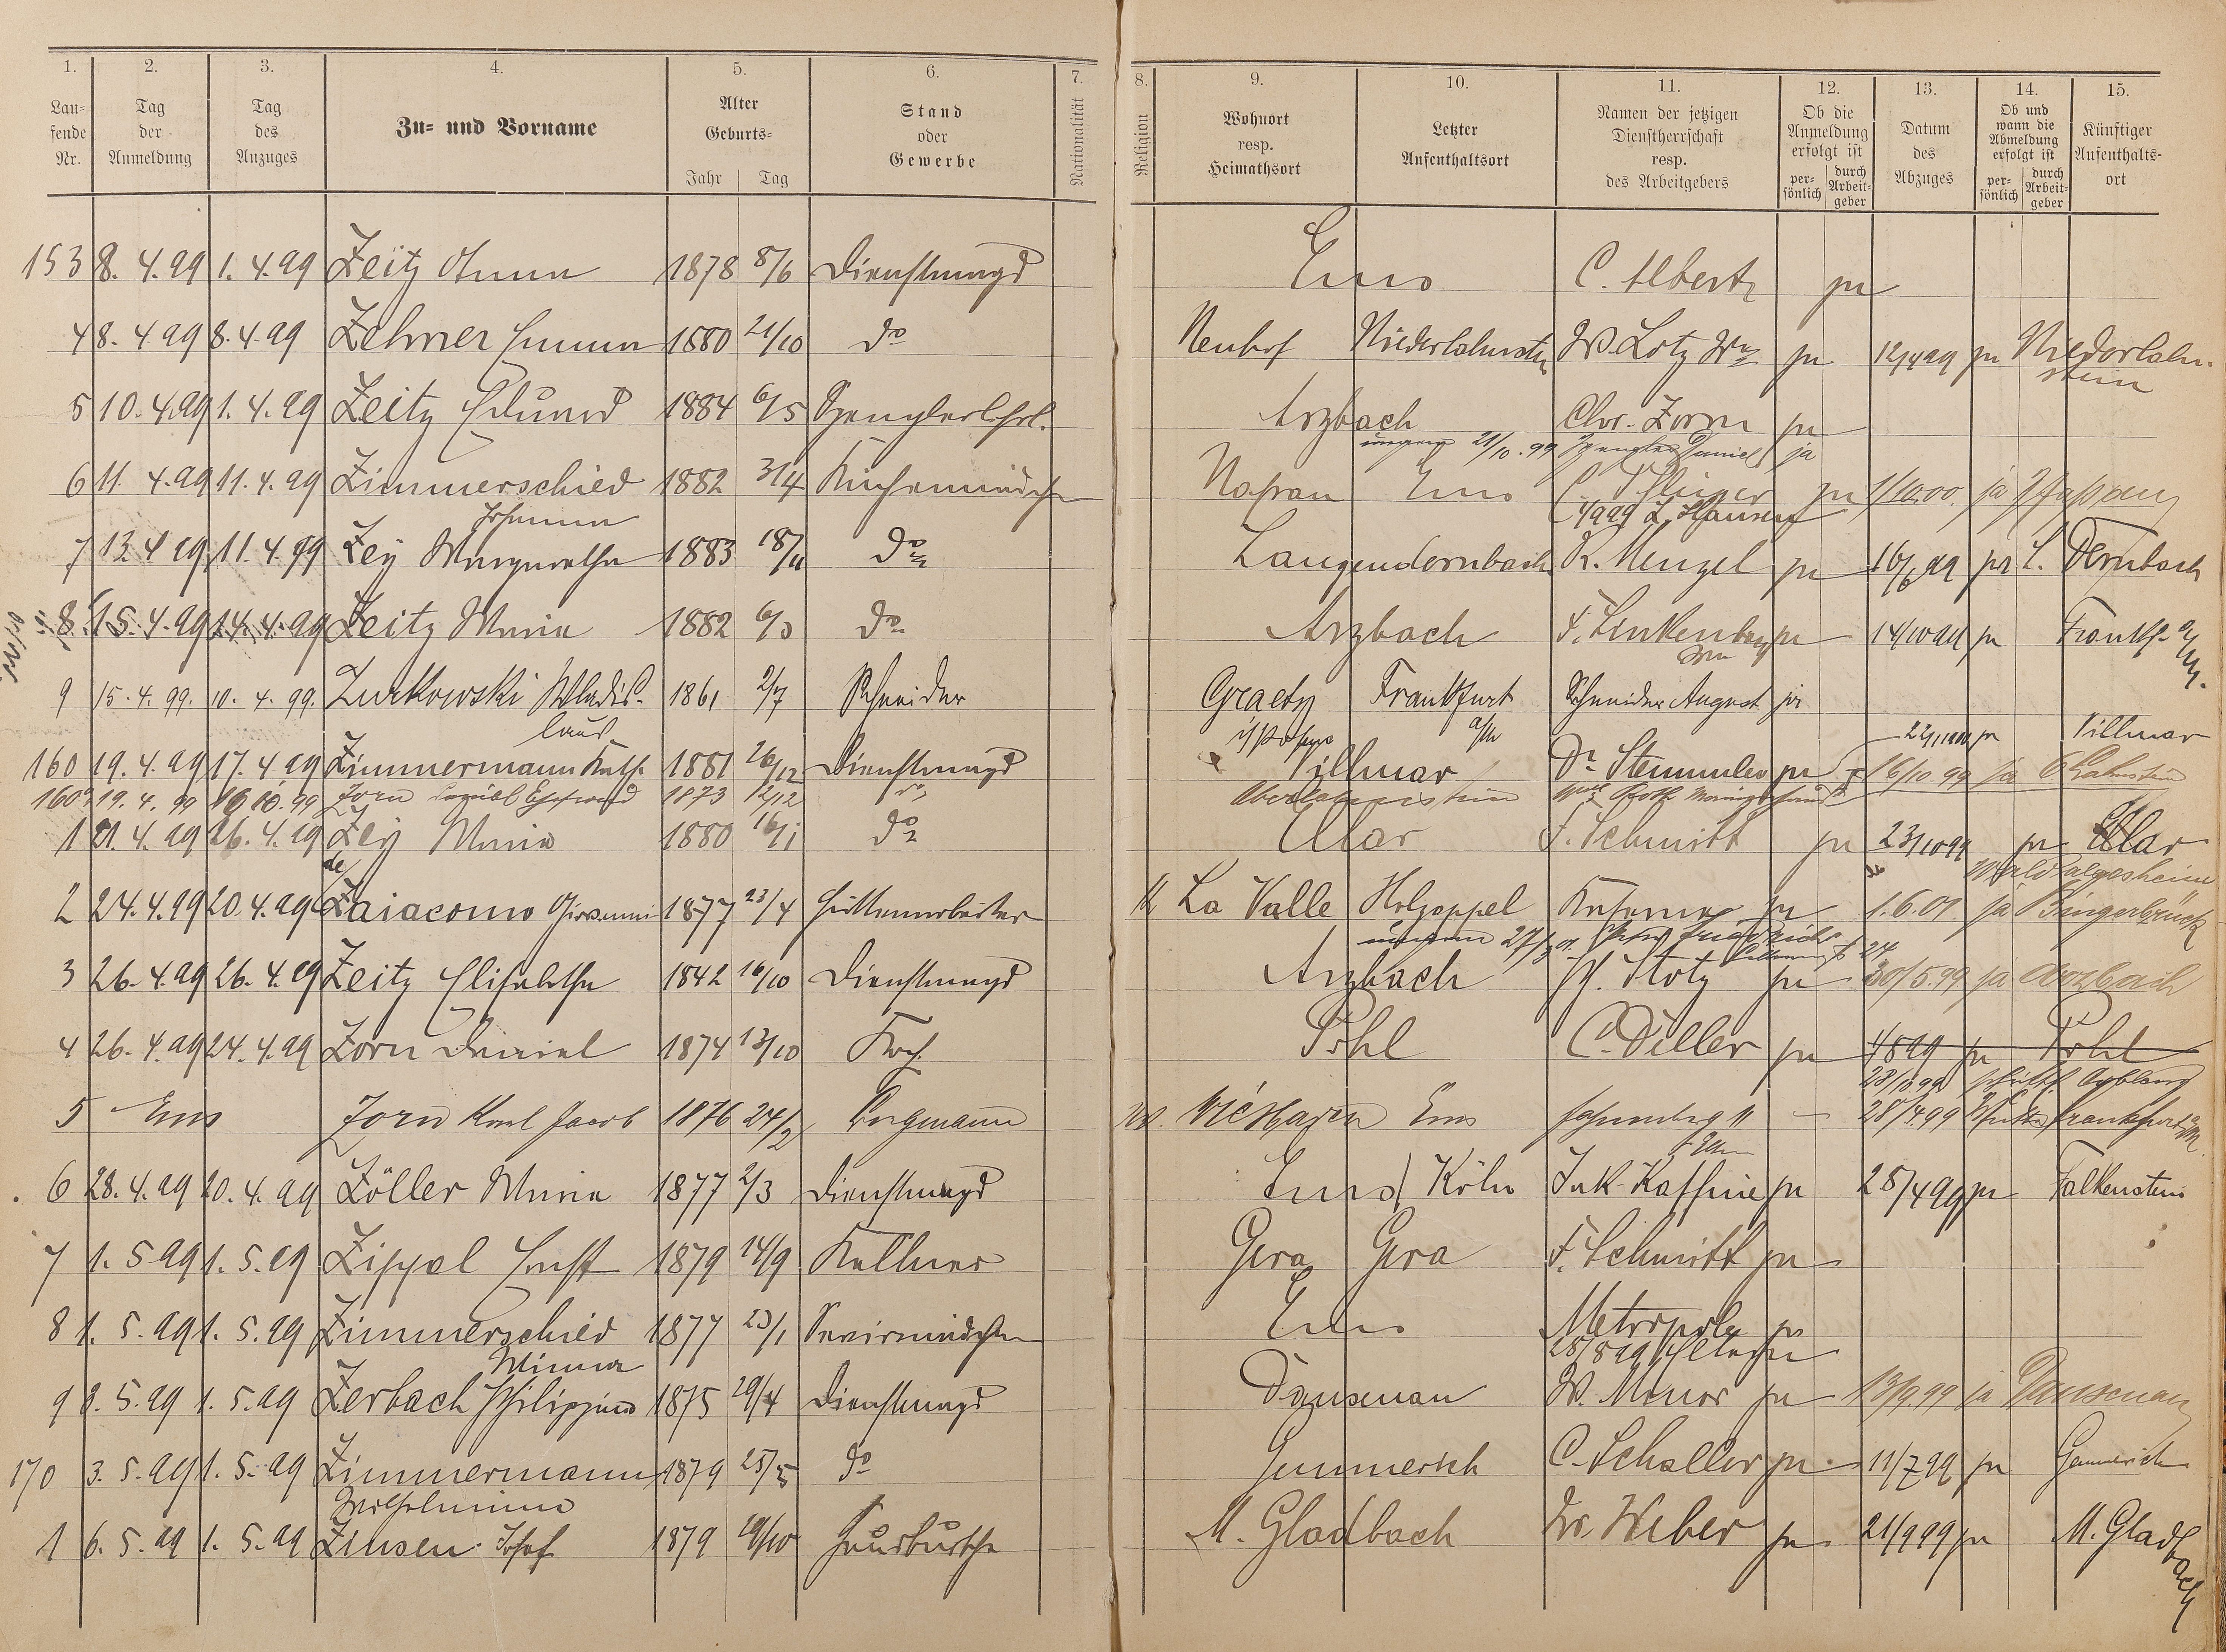 1. 2. 3. 4. 5. 6. 7. 8. 9. 10. 11. 12. 13. 14. 15.
Lau- fende Nr.
Tag der Anmeldung
Tag des Anzuges
Zu- und Vorname
Alter Geburts- Jahr Tag
Stand oder Gewerbe
Nationalität
Religion
Wohnort resp. Heimathsort
Letzter Aufenthaltsort
Namen der jetzigen Dienstherrschaft resp. des Arbeitgebers
Ob die Anmeldung erfolgt ist per- sönlich durch Arbeit- geber
Datum des Abzuges
Ob und wann die Abmeldung erfolgt ist per- sönlich durch Arbeit- geber
Künftiger Aufenthalts- ort
153 8. 4. 99 1. 4. 99 Zeitz Anna 1878 8/6 Dienstmagd Ems C. Albert ja
4 8. 4. 99 8. 4. 99 Zehner Emma 1880 21/10 do Neuhof Niederlahnstn W. Lotz Ww ja 12/4 99 ja Niederlahn-
stein
5 10. 4. 99 1. 4. 99 Zeitz Eduard 1884 6/5 Spenglerlehrl. Arzbach Chr. Zorn ja
21/10. 99 Spengler Daniel ja
6 11. 4. 99 11. 4. 99 Zimmerschied 1882 3/4 Küchenmädchen Nassau Ems ja 1/10.00. ja Nassau
Johanna
7 13. 4 99 11. 4. 99 Zey Margarethe 1883 18/11 do Langendernbach K. Menzel ja 16/6 99 ja L. Dernbach
8 15. 4. 99 14. 4. 99 Zeitz Maria 1882 6/3 do Arzbach F. Linkenbach ja 14/10 99 ja Frankf. a/M.
9 15. 4. 99. 10. 4. 99. Zurkowski Wladis- 1861 2/7 Schneider Graetz Frankfurt Schneider August ja
laus a/M
160 19. 4. 99 17. 4 99 Zimmermann Kath. 1881 26/12 Dienstmagd Villmar Dr. Stemmler ja ja Villmar
160a 19. 4. 99 16. 10. 99 Zorn Ehefrau 1873 12/12 Oberlahnstein 16/10 99 ja O Lahnstein
1 21. 4. 99 26. 4. 99 Zey Maria 1880 16/1 do Ellar F. Schmitt ja 23/10 99 ja Ellar
Waldalgesheim
2 24. 4. 99 20. 4. 99 de Zaiacomo Giovanni 1877 23/4 Hüttenarbeiter K La Valle Holzappel ja 1. 6. 01 ja Bingerbrück
3 26. 4. 99 26. 4. 99 Zeitz Elisabethe 1842 16/10 Dienstmagd Arzbach H. Stotz ja 30/5.99 ja Arzbach
4 26. 4. 99 24. 4. 99 Zorn Daniel 1874 13/10 Koch Pohl C. Diller ja 4 8 99 ja Pohl
28/10 99
5 Ems Zorn Karl Jacob 1876 24/2 Bergmann Wiesbaden Ems 28/4.99 Frankfurt a/M
6 28. 4. 99 20. 4. 99 Zöller Maria 1877 2/3 Dienstmagd Ems Köln Jak. Kaffine ja 28/4 99 ja Falkenstein
7 1. 5 99 1. 5. 99 Zippel Ernst 1879 14/9 Kellner Gera Gera F. Schmitt ja
8 1. 5. 99 1. 5. 99 Zimmerschied 1877 23/1 Servirmädchen Ems Metropole ja
Minna 28/8 99 ja
9 2. 5. 99 1. 5. 99 Zerbach Philippine 1875 29/4 Dienstmagd Dausenau W. Minor ja 13/9.99 ja Dausenau
170 3. 5. 99 1. 5. 99 Zimmermann 1879 25/5 do Gemmerich C. Schaller ja 11/7 99 ja Gemmerich
Wilhelmine
1 6. 5. 99 1. 5. 99 Zinsen Josef 1879 19/10 Hausbursche M. Gladbach Dr. Weber ja 21/9 99 ja M. Gladbach